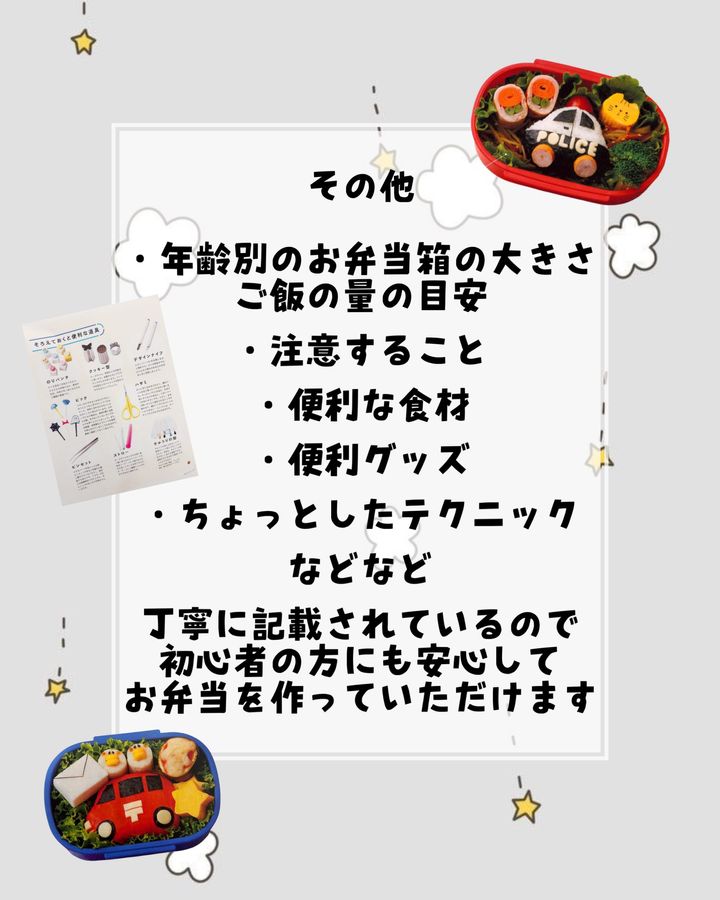 その他
・年齢別のお弁当箱の大きさ
ご飯の量の目安
・注意すること
・便利な食材
・便利グッズ
・ちょっとしたテクニック
などなど
丁寧に記載されているので
初心者の方にも安心して
お弁当を作っていただけます
POLICE
そろえておくと便利な道具
のりパンチ
クッキー型
デザインナイフ
ピック
ハサミ
ピンセット
ストロー